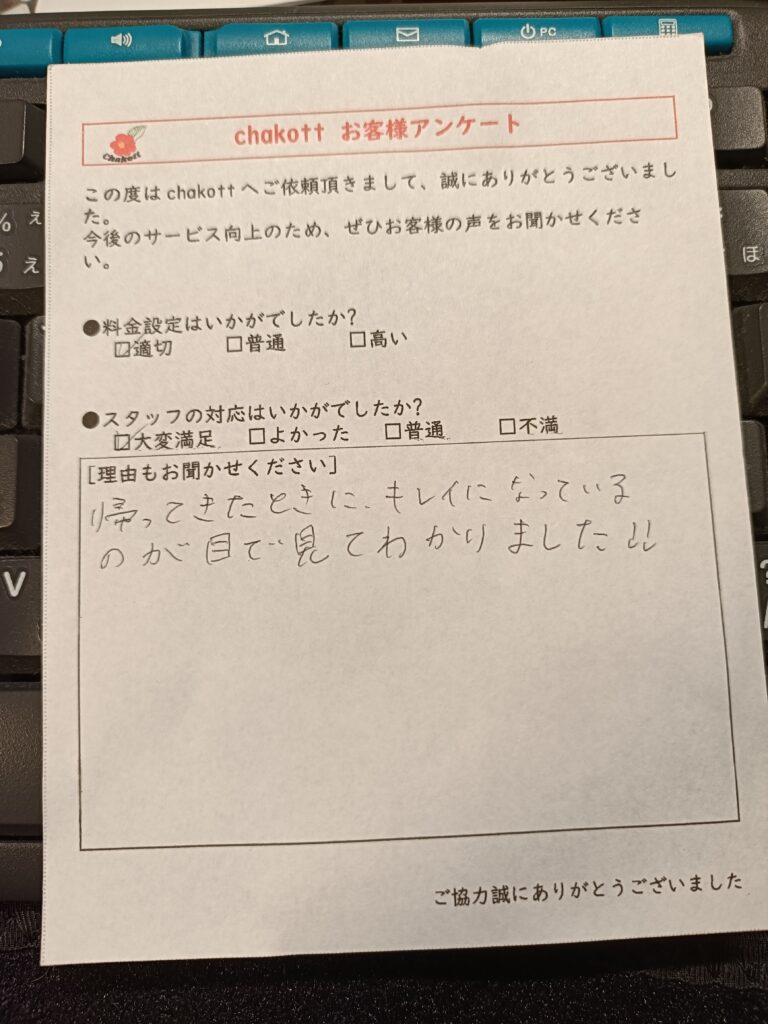 PC
Chakott
chakott お客様アンケート
この度は chakott へご依頼頂きまして、誠にありがとうございまし
た。
今後のサービス向上のため、ぜひお客様の声をお聞かせくださ
い。
●料金設定はいかがでしたか?
☑適切 □普通 □高い
●スタッフの対応はいかがでしたか?
☑大変満足 □よかった □普通 □不満
[理由もお聞かせください]
帰ってきたときに、キレイになっている
のが目で見てわかりました!!
ご協力誠にありがとうございました
%
え
え
ほ
V